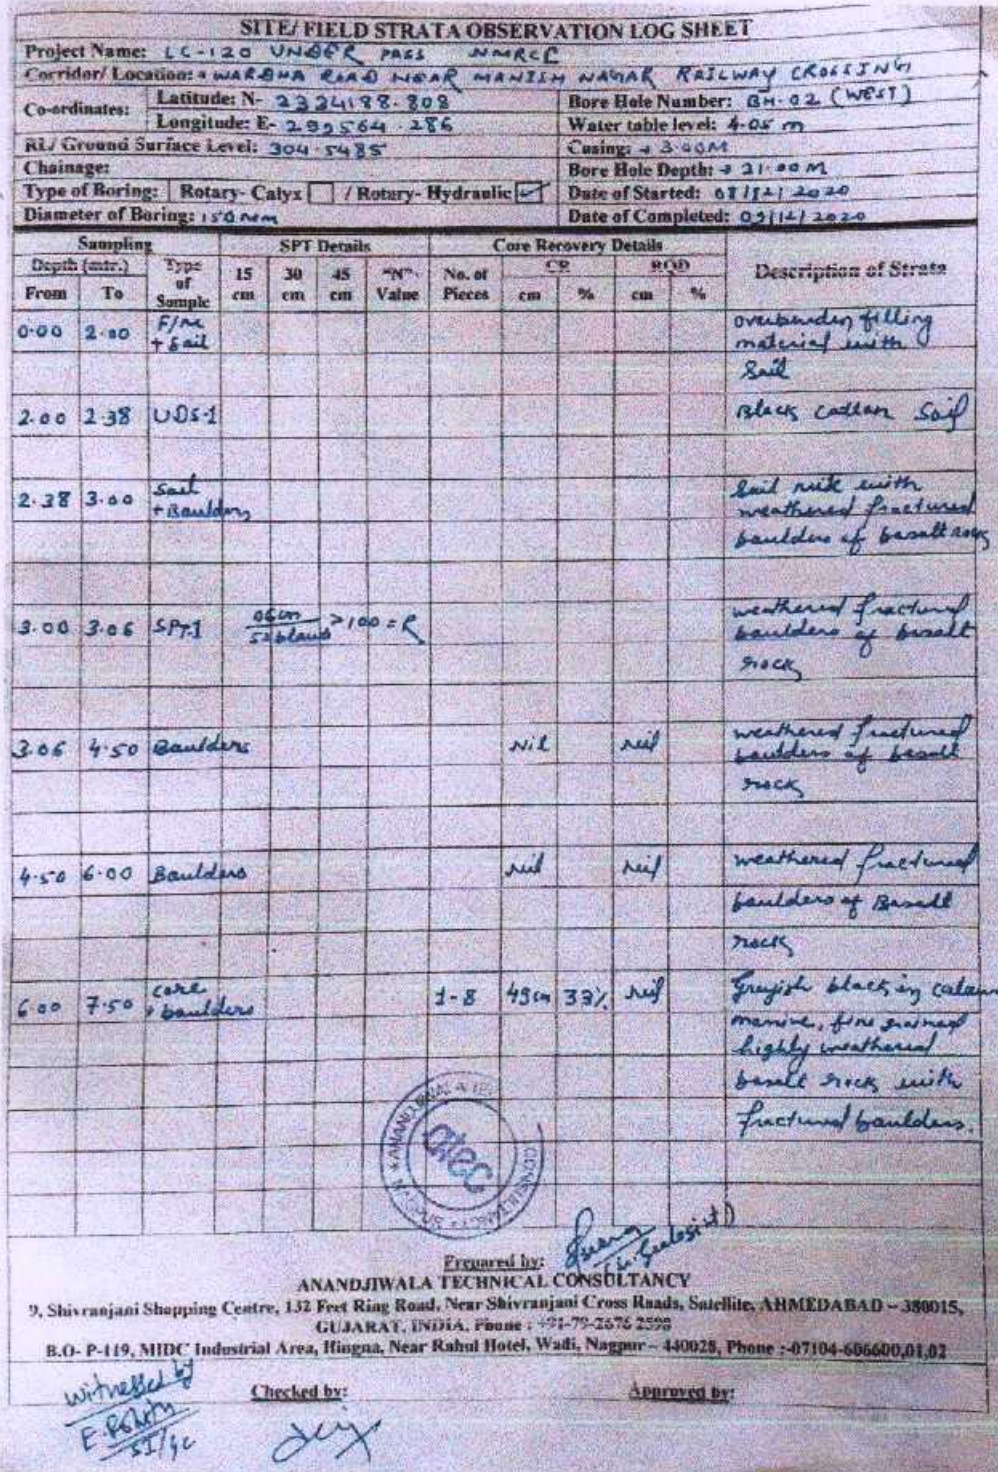 SITE/ FIELD STRATA OBSERVATION LOG SHEET
Project Name: LC-120 UNDER PASS NMRCP
Corridor/ Location: WARDHA ROAD NEAR MANISH NAGAR RAILWAY CROSSING
Co-ordinates: Latitude: N- 2334198.808 Bore Hole Number: BH-02 (WEST)
Longitude: E- 299564.286 Water table level: 4.05 m
RL/ Ground Surface Level: 304.5485 Casing: → 3.00M
Chainage: Bore Hole Depth: → 21.00M
Type of Boring: Rotary- Calyx / Rotary- Hydraulic Date of Started: 08/12/2020
Diameter of Boring: 150 mm Date of Completed: 09/12/2020
Sampling SPT Details Core Recovery Details Description of Strata
Depth (mtr.) Type of Sample 15 cm 30 cm 45 cm "N" Value No. of Pieces CR RQD
From To cm % cm %
0.00 2.00 F/M + Sail overburden filling
material with
Sail
2.00 2.38 UDS-1 Black cattan Soil
2.38 3.00 Sail + Baulders Sail mix with
weathered fractured
baulders of basalt rock
3.00 3.06 SPT-1 06cm/52 blaws >100 = R weathered fractured
baulders of basalt
rock
3.06 4.50 Baulders Nil Nil weathered fractured
baulders of basalt
rock
4.50 6.00 Baulders Nil Nil weathered fractured
baulders of Basalt
rock
6.00 7.50 core + baulders 1-8 49cm 33% Nil Greyish black in calour
fine grained
highly weathered
basalt rock with
fractured baulders.
atec
CONSULTANCY
Prepared by:
ANANDJIWALA TECHNICAL CONSULTANCY
9, Shivranjani Shopping Centre, 132 Feet Ring Road, Near Shivranjani Cross Roads, Satellite, AHMEDABAD – 380015,
GUJARAT, INDIA. Phone : +91-79-2676 2598
B.O- P-119, MIDC Industrial Area, Hingna, Near Rahul Hotel, Wadi, Nagpur – 440028, Phone :-07104-606600,01,02
Witnessed by Checked by: Approved by: